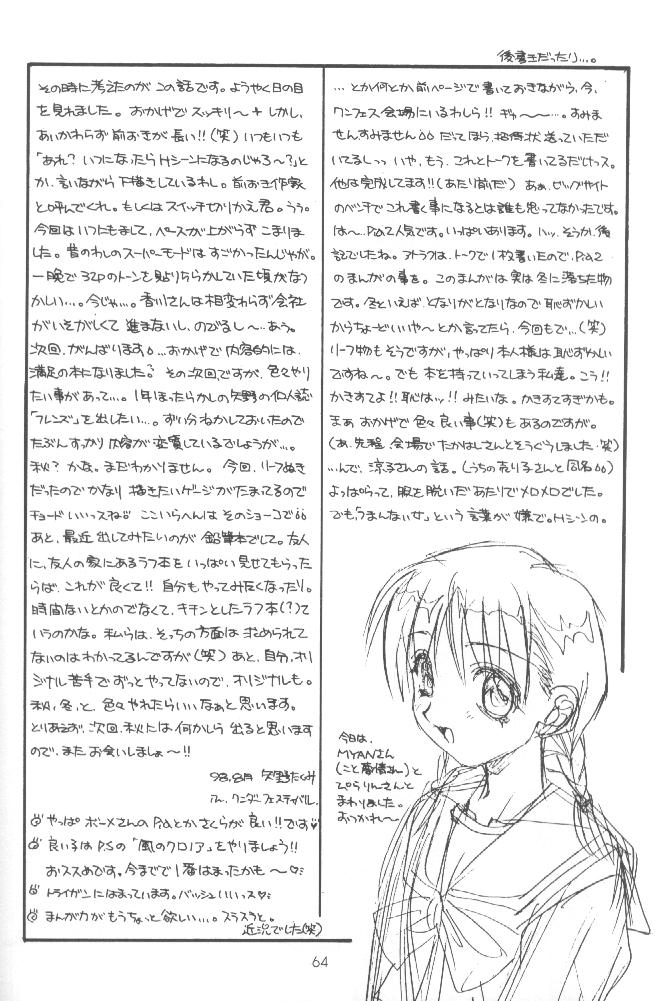 後書きだったり…。
…とか何とか、前ページで書いておきながら、今、
ワンフェス会場にいるわしら!! ギゅ〜〜…。すみま
せんすみません だってほう、招待状 送っていただ
いてるしっっ いや、もう、これとトークを書いてるだけっス。
他は完成してます!!(あたり前だ) あぁ、ビッグサイト
のベンチで これ書く事になるとは誰も思ってなかったです。
は〜、P.a2 人気です。いっぱいあります。ハッ、そうか、後
記でしたね。アトラフは、トークで1枚書いたので、P.a2
のまんがの事を。このまんがは 実は冬に落ちた物
です。冬といえば、となりがとなりなので 恥ずかしい
からちょーどいいや〜 とか言ってたら、今回もで…(笑)
リーフ物もそうですが、やっぱり本人様は恥ずかしい
ですね〜。でも 本を持っていってしまう私達。こう!!
かきすてよ!! 恥はッ!! みたいな。かきすてすぎかも。
まぁ おかげで色々 良い事(笑)もあるのですが。
(あ、先程、会場でたかはしさんとそうぐうしました・笑)
…んで、涼子さんの話。(うちの売り子さんと同名)
よっぱらって、服を脱いだあたりでメロメロでした。
でも「つまんない女」という言葉が嫌で。Hシーンの。
その時に考えたのが この話です。ようやく日の目
を見れました。おかげで スッキリ〜+ しかし、
あいかわらず 前おきが長い!!(笑)いつもいつも
「あれ? いつになったらHシーンになるのじゃろ〜?」と
か、言いながら下描きしているわし。前おき作家
と呼んでくれ。もしくはスイッチきりかえ君。うう。
今回は いつにもまして、ペースが上がらず こまりま
した。昔のわしのスーパーモードは すごかったんじゃが。
一晩で32Pのトーンを貼りちらかしていた頃がなつ
かしい…。今じゃ…。香川さんは相変わらず会社
がいそがしくて 進まないし、のびるし〜‥あう。
次回、がんばります。…おかげで内容的には、
満足の本になりました? その次回ですが、色々やり
たい事があって…。1年ほったらかしの矢野の個人誌
「フレンズ」を出したい…。ずい分ねかしておいたので
たぶんすっかり内容が変質しているでしょうが…。
秋? かな。まだわかりません。今回、リーフぬき
だったのでかなり描きたいゲージがたまってるので
チョードいいっスね ここいらへんは そのショーコで
あと、最近 出してみたいのが 鉛筆本でして。友人
に、友人の家にあるラフ本をいっぱい見せてもらった
らば、これが良くて!! 自分もやってみたくなったり。
時間ないとかのでなくて、キチンとしたラフ本(?)て
いうのかな。私らは、そっちの方面は求められて
ないのはわかってるんですが(笑)あと、自分、オリ
ジナル苦手でずっとやってないので、オリジナルも。
秋、冬、と、色々やれたらいいなぁと思います。
とりあえず、次回、秋には 何かしら 出ると思います
ので、また お会いしましょ〜!!
98.8月 矢野たくみ
ワンダーフェスティバル.
やっぱ ボーメさんの P.aとか さくらが良い!!です
良い子は P.Sの「風のクロノア」をやりましょう!!
おススメです。今までで1番はまったかも〜♡
トライガンにはまっています。バッシュいいっス♡
まんが力が もうちょっと欲しい…。スラスラと。
近況でした(笑)
今日は、
MYANさん
と
ぴらりんさんと
まわりました。
おつかれ〜
64